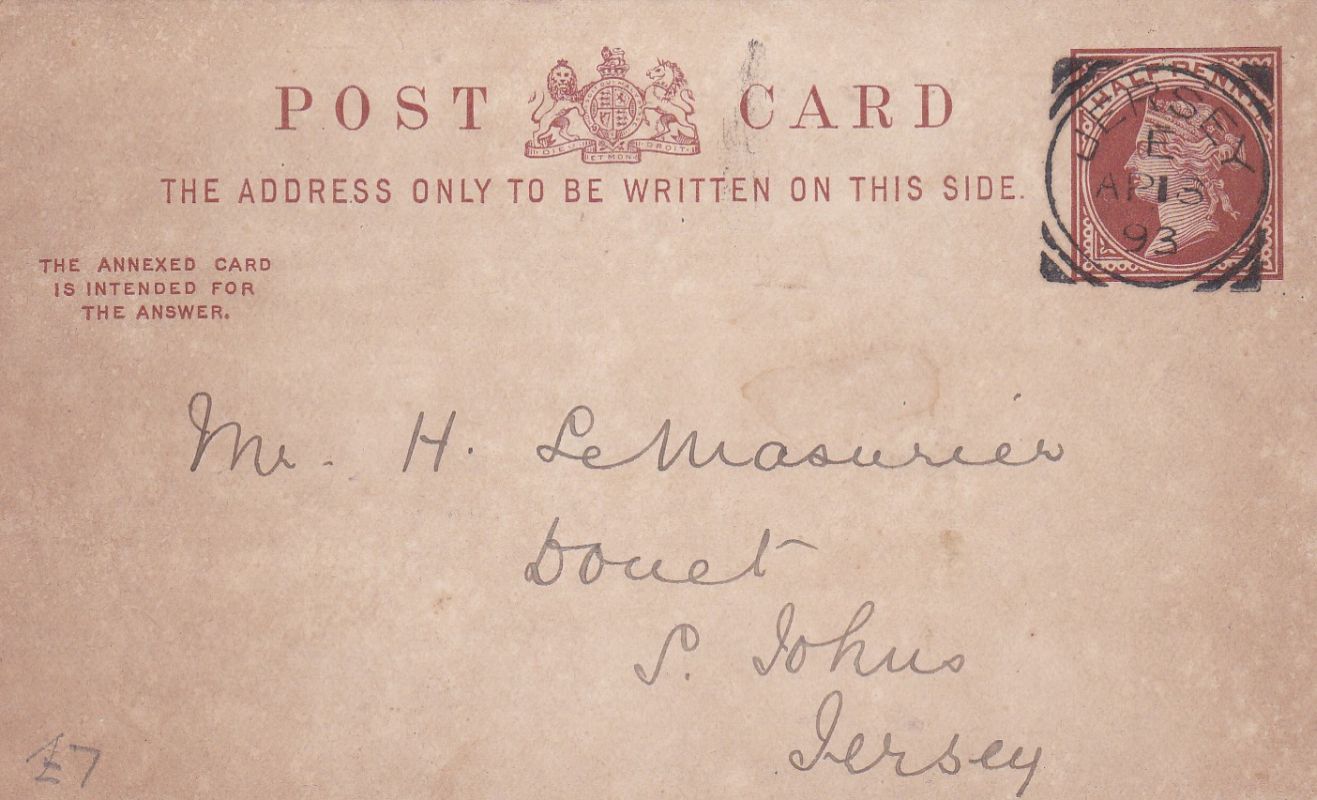 POST CARD
DIEU ET MON DROIT
THE ADDRESS ONLY TO BE WRITTEN ON THIS SIDE.
HALFPENNY
JERSEY
E
AP 13
93
THE ANNEXED CARD
IS INTENDED FOR
THE ANSWER.
Mr. H. Le Masurier
Douet
S. Johns
Jersey
£7